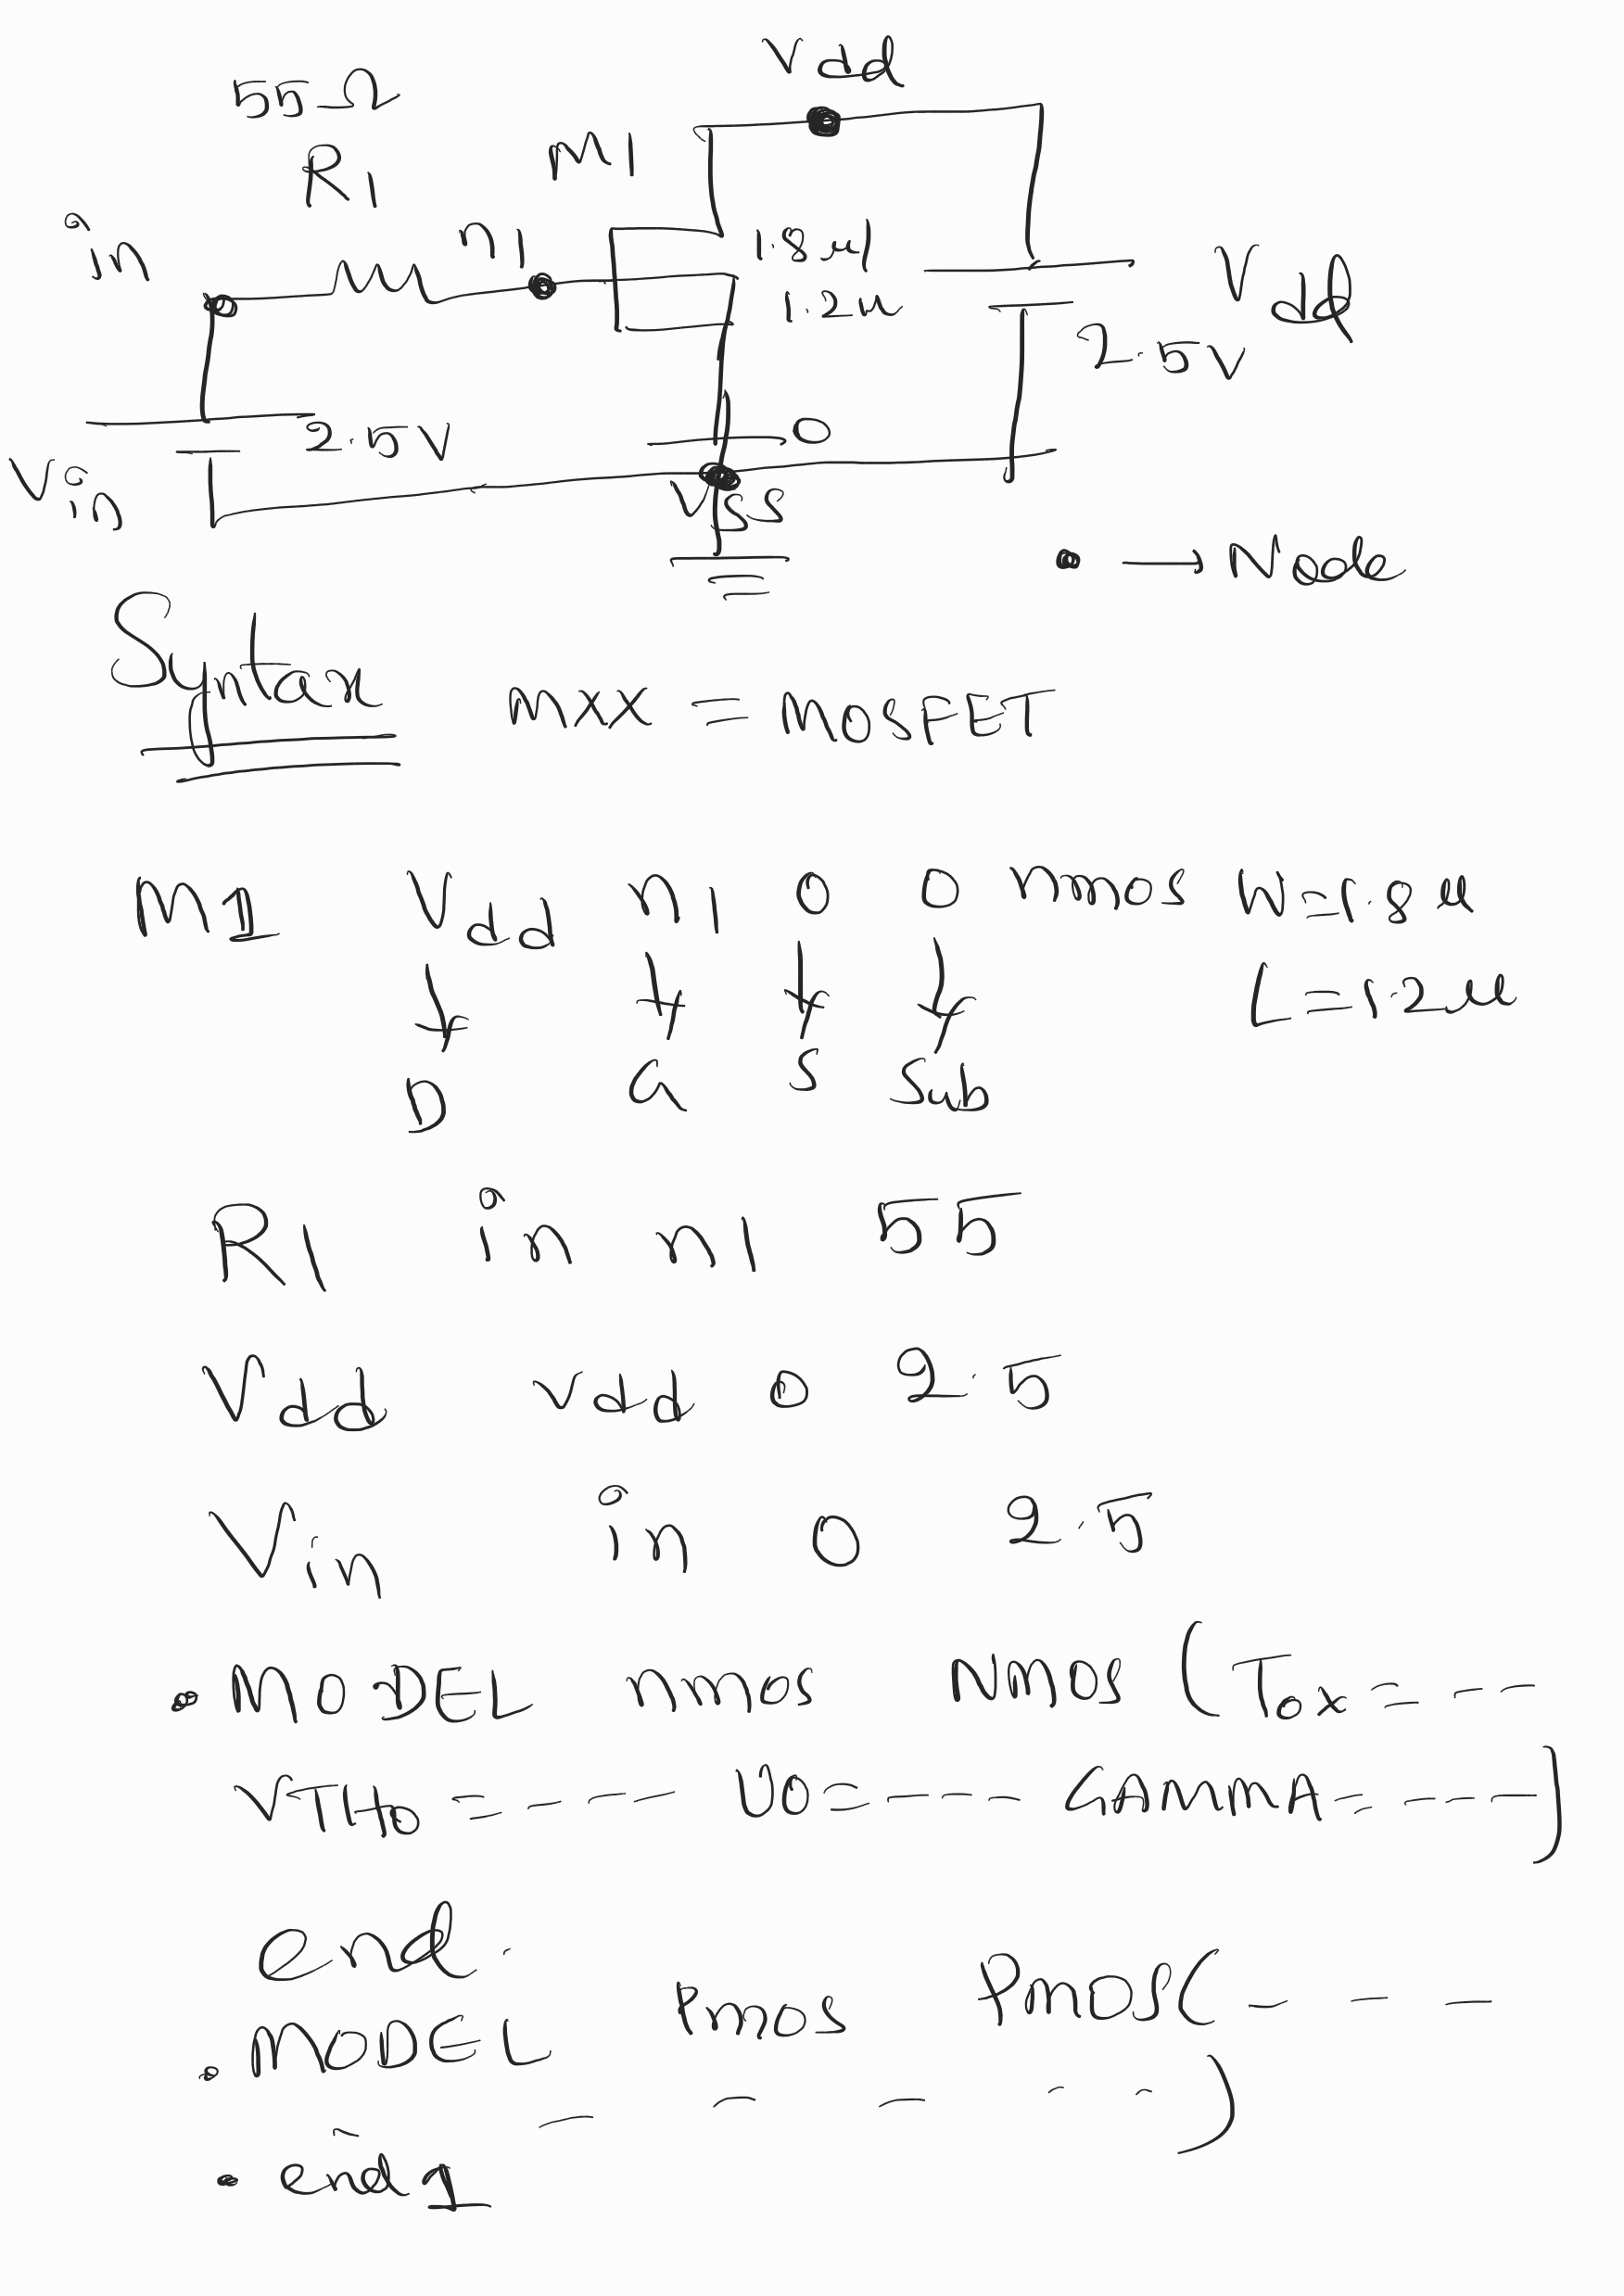 Vdd
55Ω
R1
M1
in
n1
1.8u
1.2u
Vdd
2.5V
2.5V
0
Vin
Vss
→ Node
Syntax
MXX = MOSFET
M1 Vdd n1 0 0 nmos W=1.8u
L=1.2u
D G S Sub
R1 in n1 55
Vdd vdd 0 2.5
Vin in 0 2.5
.MODEL nmos NMOS (Tox= --
VTH0 = --- UO= --- GAMMA= ---)
end.
.MODEL Pmos PMOS( - - -
- - - - -)
.end1